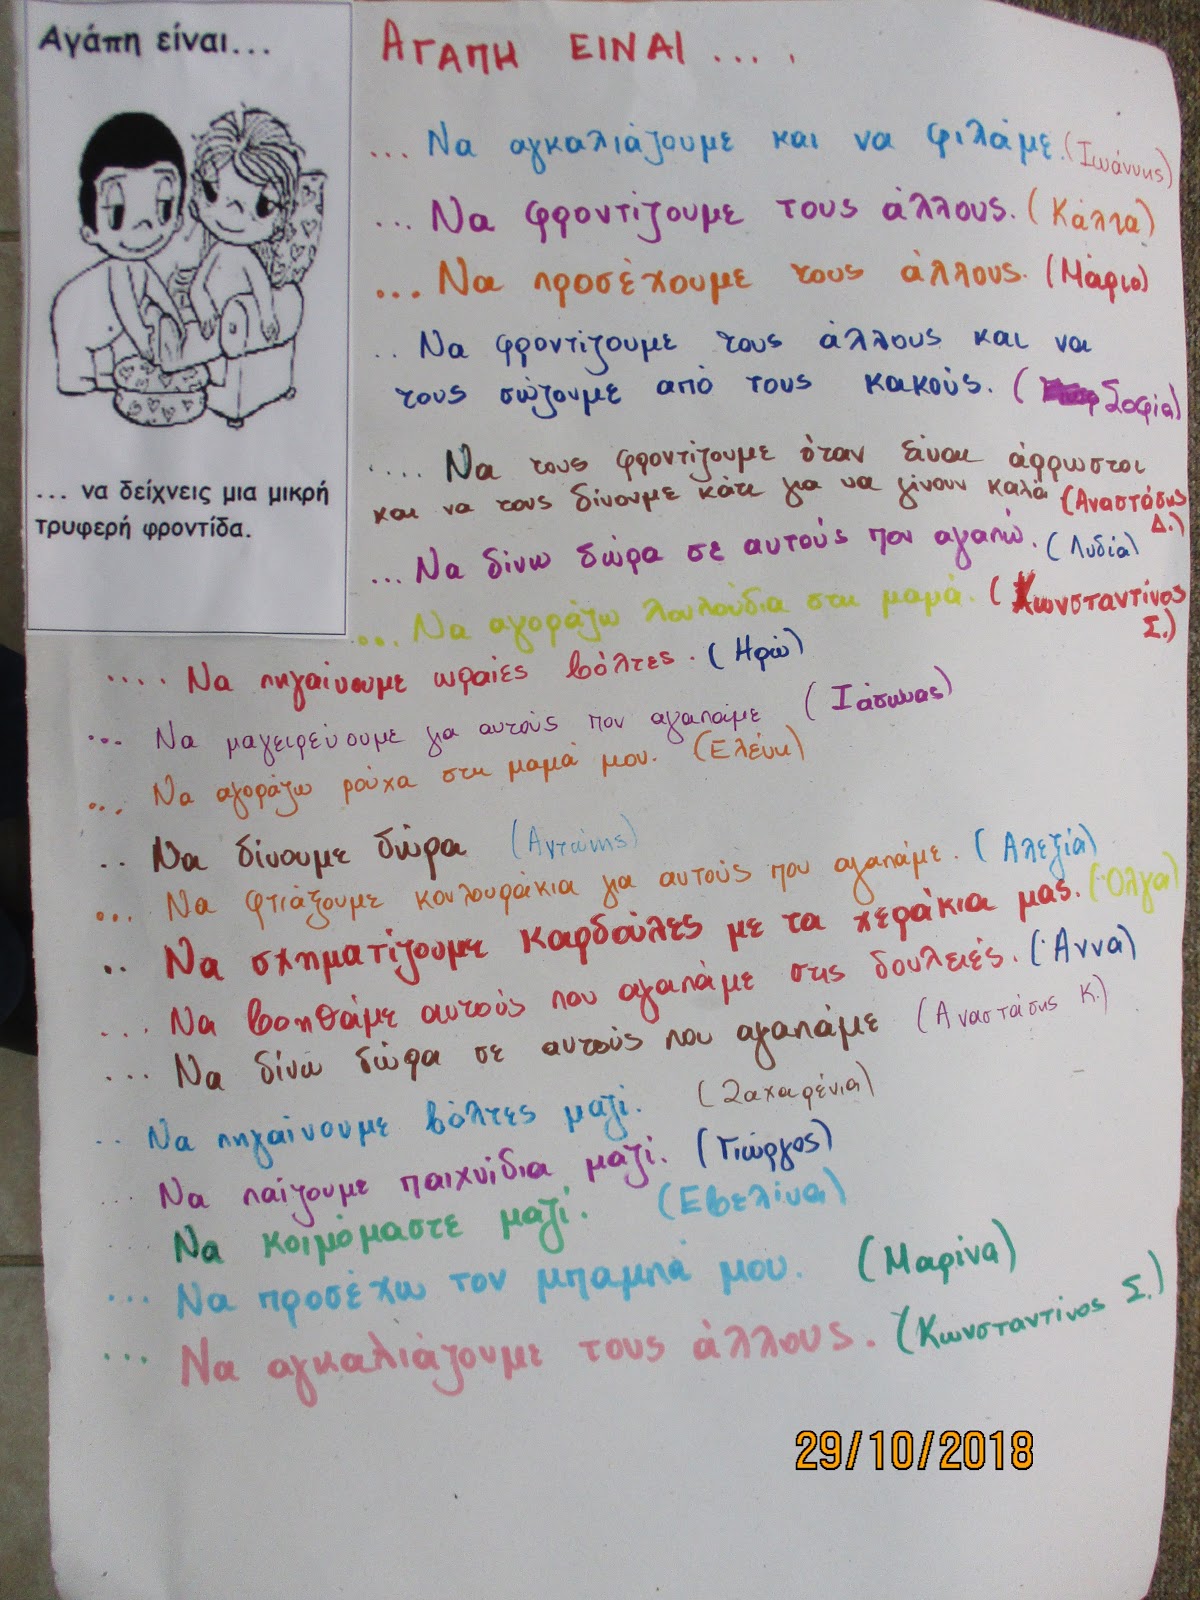 Αγάπη είναι...
... να δείχνεις μια μικρή
τρυφερή φροντίδα.
ΑΓΑΠΗ ΕΙΝΑΙ ....
... Να αγκαλιάζουμε και να φιλάμε. (Ιωάννης)
... Να φροντίζουμε τους άλλους. (Κάλια)
... Να προσέχουμε τους άλλους. (Μάριο)
.. Να φροντίζουμε τους άλλους και να
τους σώζουμε από τους κακούς. (Σοφία)
.... Να τους φροντίζουμε όταν είναι άρρωστοι
και να τους δίνουμε κάτι για να γίνουν καλά (Αναστάσης
Δ.)
... Να δίνω δώρα σε αυτούς που αγαπώ. (Λυδία)
... Να αγοράζω λουλούδια στη μαμά. (Κωνσταντίνος
Σ.)
.... Να πηγαίνουμε ωραίες βόλτες. (Ηρώ)
... Να μαγειρεύουμε για αυτούς που αγαπάμε (Ιάσωνας)
... Να αγοράζω ρούχα στη μαμά μου. (Ελένη)
.. Να δίνουμε δώρα (Αντώνης)
... Να φτιάξουμε κουλουράκια για αυτούς που αγαπάμε. (Αλεξία)
.. Να σχηματίζουμε καρδούλες με τα χεράκια μας. (Όλγα)
... Να βοηθάμε αυτούς που αγαπάμε στις δουλειές. (Άννα)
... Να δίνω δώρα σε αυτούς που αγαπάμε (Αναστάσης Κ.)
.. Να πηγαίνουμε βόλτες μαζί. (Ζαχαρένια)
... Να παίζουμε παιχνίδια μαζί. (Γιώργος)
... Να κοιμόμαστε μαζί. (Εβελίνα)
... Να προσέχω τον μπαμπά μου. (Μαρίνα)
... Να αγκαλιάζουμε τους άλλους. (Κωνσταντίνος Σ.)
29/10/2018